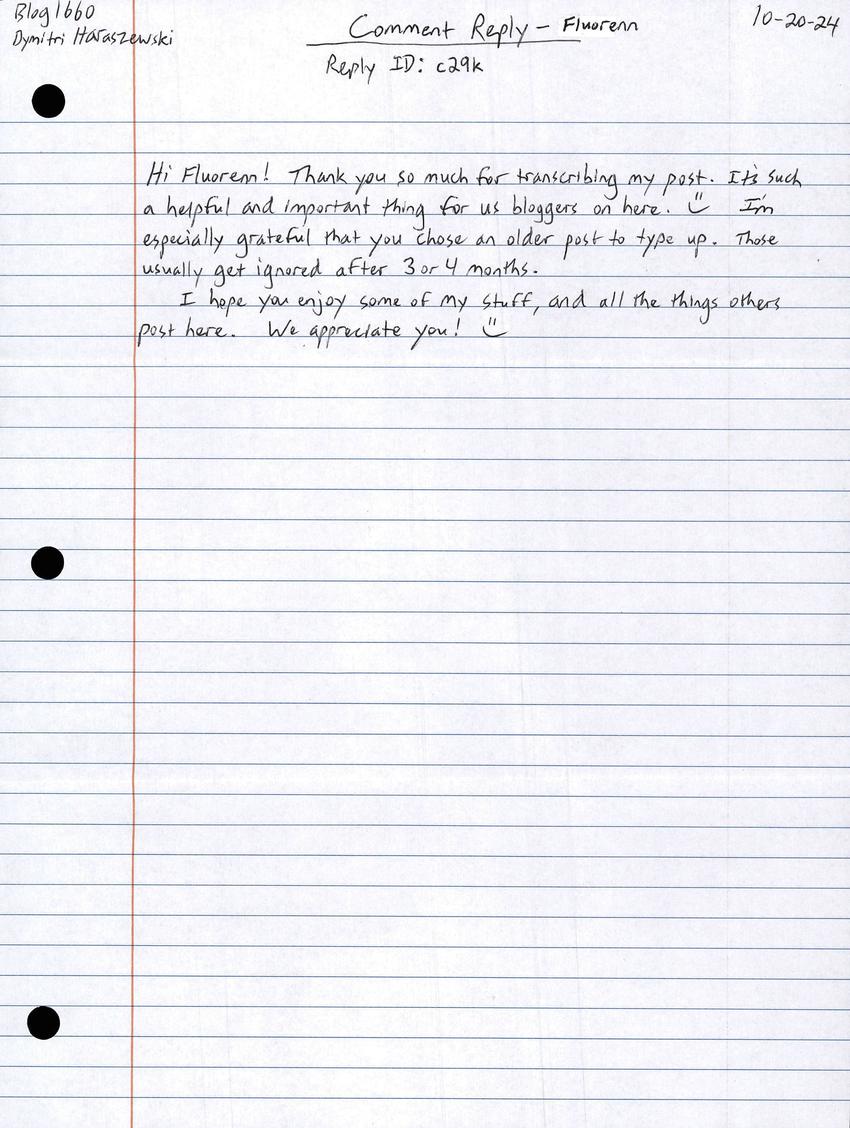 Blog 1660
Dymitri Haraszewski
Comment Reply - Fluorenn
10-20-24
Reply ID: c29k
Hi Fluorenn! Thank you so much for transcribing my post. It's such
a helpful and important thing for us bloggers on here. I'm
especially grateful that you chose an older post to type up. Those
usually get ignored after 3 or 4 months.
I hope you enjoy some of my stuff, and all the things others
post here. We appreciate you!